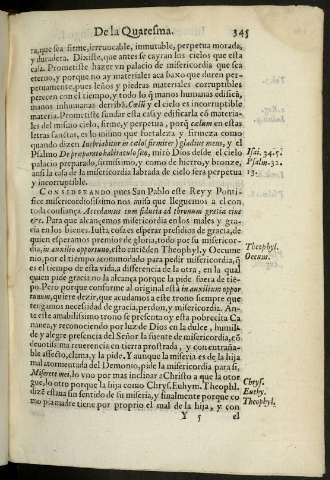 De la Quaresma. 345
ra, que sea firme, irreuocable, inmutable, perpetua morada,
y duradera. Dixiste, que antes se cayran los cielos que esta
casa. Prometiste hazer vn palacio de misericordia que sea
eterno, y porque no ay materiales aca baxo que duren per-
petuamente, pues leños y piedras materiales corruptibles
perecen con el tiempo, y todo lo q̃ manos humanas edificã,
manos inhumanas derribã. Cœlũ y el cielo es incorruptible
materia. Prometiste fundar esta casa y edificarla cõ materia-
les del mismo cielo, firme, y perpetua, porq̃ cælum en estas
letras santas, es lo mismo que fortaleza y firmeza como
quando dizen Inebriabitur in cælo (firmiter) gladius meus, y el
Psalmo De præparato habitaculo suo, mirò Dios desde el cielo
palacio preparado, firmissimo, y como de hierro, y bronze,
ansi la casa de la misericordia labrada de cielo sera perpetua
y incorruptible.
Isai. 34.5.
Psalm. 32.
13.
CONSIDERANDO pues San Pablo este Rey y Ponti-
fice misericordiosissimo nos auisa que lleguemos a el con
toda confiança. Accedamus cum fiducia ad thronum gratiæ eius
&c. Para que alcancemos misericordia en los males y gra-
cia en los bienes. Iusta cosa es esperar presidios de gracia, de
quien esperamos premios de gloria, todo por su misericor-
dia, in auxilio opportuno, esto entiẽden Theophyl. y Oecume
nio, por el tiempo acomodado para pedir misericordia, q̃
es el tiempo de esta vida, a differencia de la otra, en la qual
quien pide gracia no la alcança porque la pide fuera de tiẽ-
po. Pero porque conforme al original està in auxilium oppor
tunum, quiere dezir, que acudamos a este trono siempre que
tengamos necessidad de gracia, perdon, y misericordia. An-
te este amabilissimo trono se presenta oy esta pobrecita Ca
nanea, y reconociendo por luz de Dios en la dulce, humil-
de y alegre presencia del Señor la fuente de misericordia, cõ
deuotissima reuerencia en tierra prostrada, y con entraña-
ble affecto, clama, y la pide. Y aunque la miseria es de la hija
mal atormentada del Demonio, pide la misericordia para si,
Miserere mei, lo vno por mas inclinar a Christo a que la otor
gue, lo otro porque la hija como Chrys. Euthym. Theophl.
dizẽ estaua sin sentido de su miseria, y finalmente porque co
mo piamadre tiene por proprio el mal de la hija, y con
Theophyl.
Oecum.
Chrys.
Euthy.
Theophyl.
Y 5 el